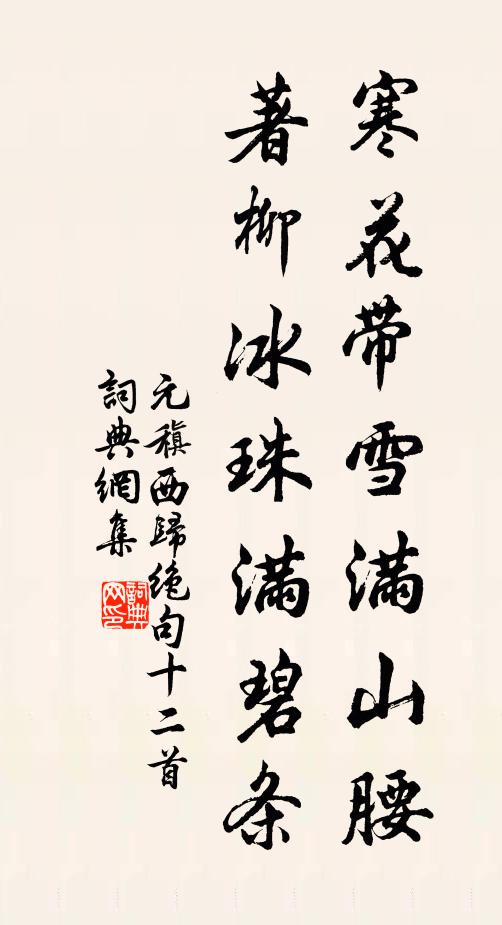 寒花带雪满山腰
著柳冰珠满碧条
元稹西歸绝句十二首
詞典網集
詞典网印